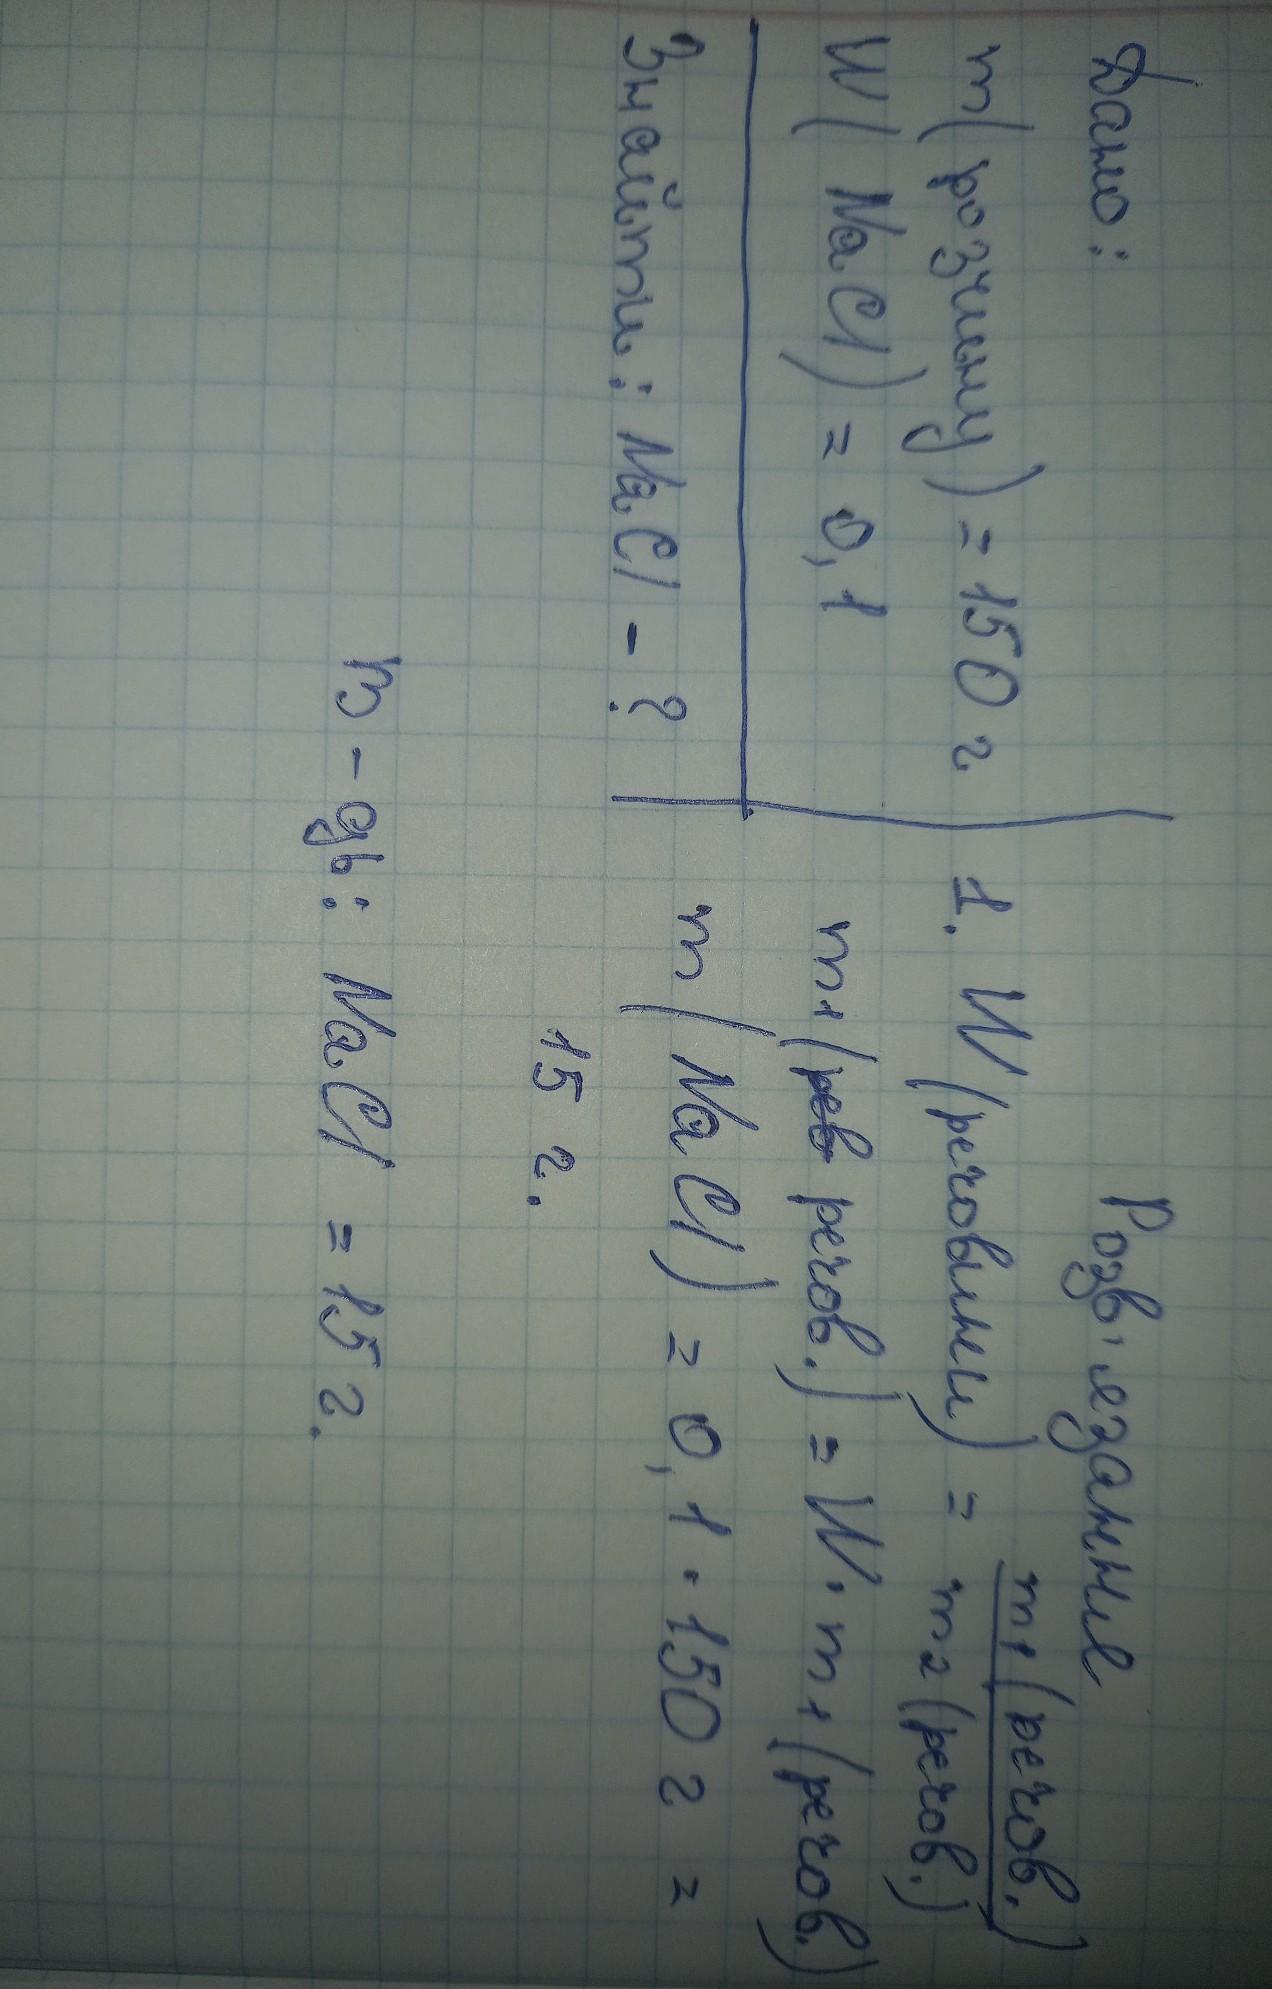 Дано:
m(розчину) = 150 г
W(NaCl) = 0,1
Знайти: NaCl - ?
Розв'язання
1. W(речовини) = m₁(речов.) / m₂(речов.)
m₁(рев речов.) = W · m₁(речов.)
m(NaCl) = 0,1 · 150 г =
15 г.
В-дь: NaCl = 15 г.